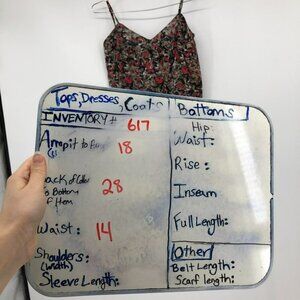 Tops, Dresses, Coats
INVENTORY# 617
Armpit to 18
Back of
to Bottom 28
of Hem
Waist: 14
Shoulders:
(width)
Sleeve Length:
Bottoms
Hip:
Waist:
Rise:
Inseam
Full Length:
Other
Belt Length:
Scarf length: